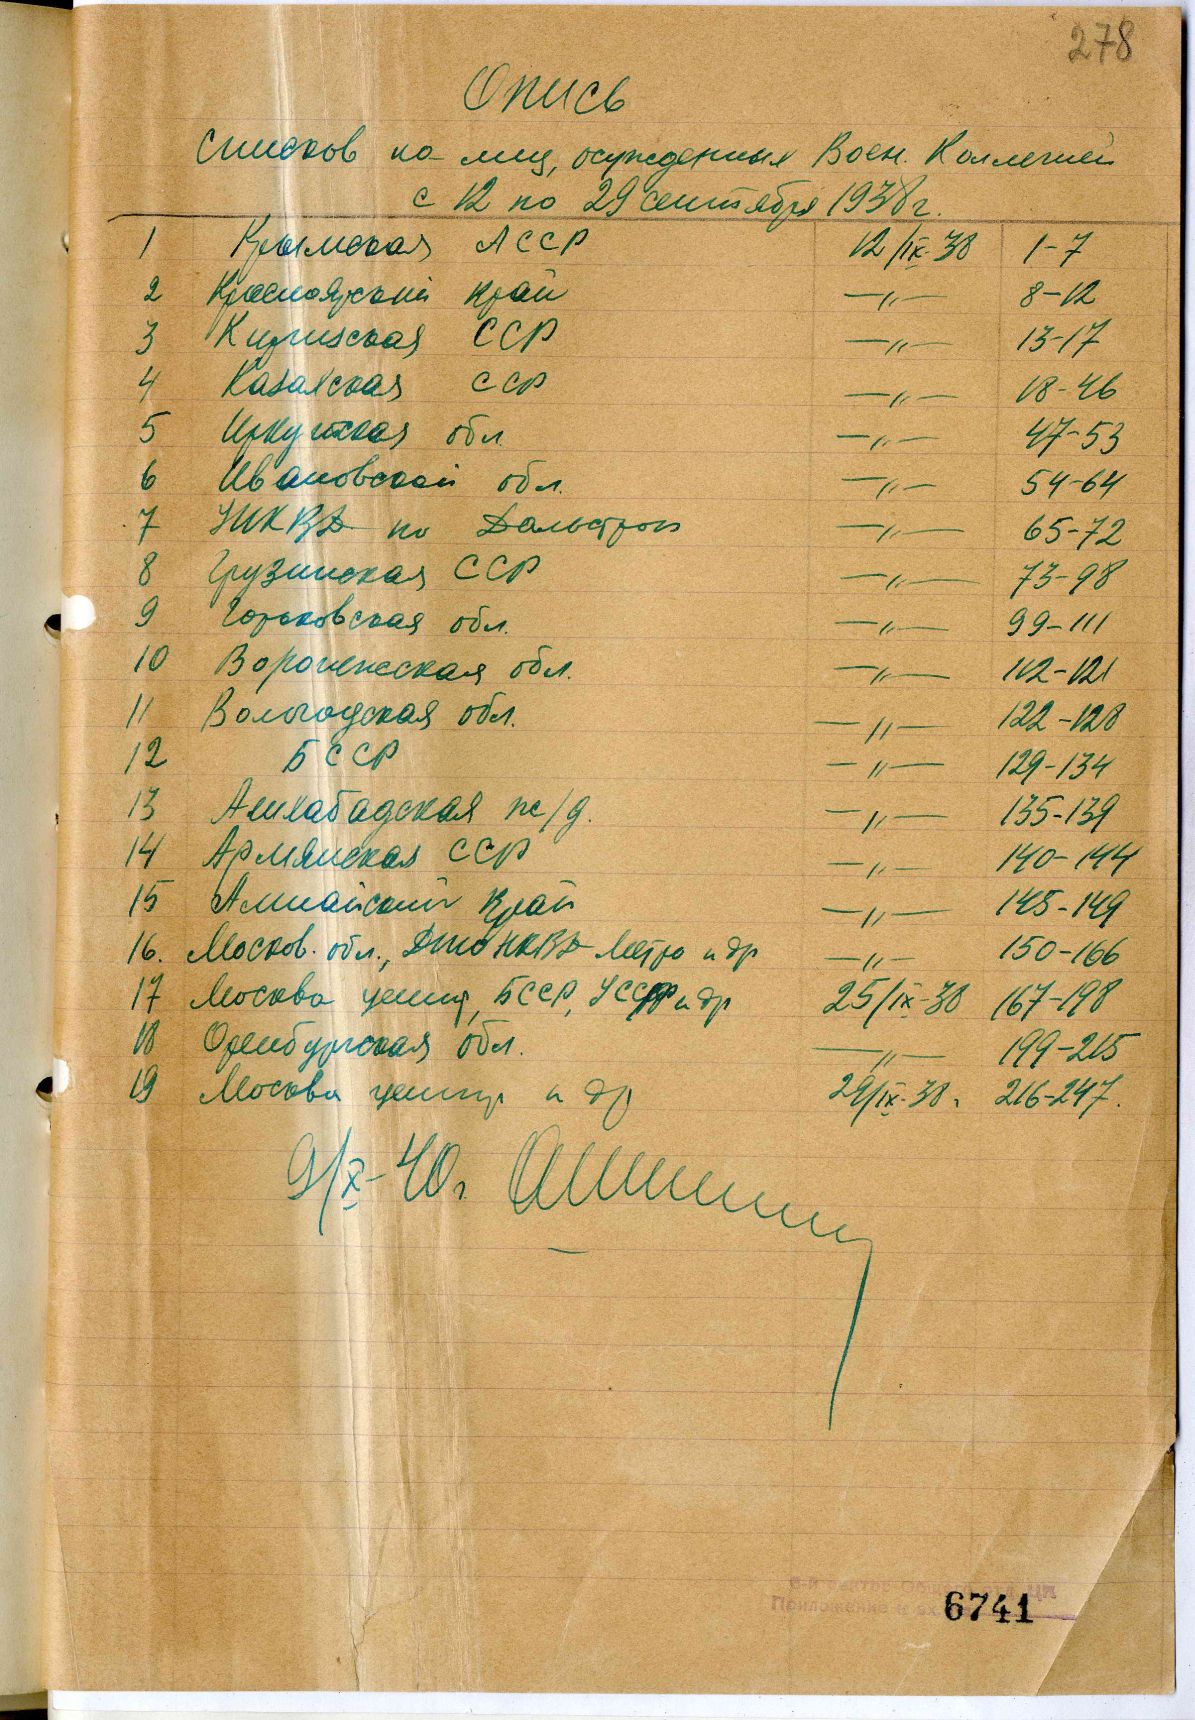 278
Опись
списков на лиц, осужденных Воен. Коллегией
с 12 по 29 сентября 1938 г.
1 Крымская АССР 12/IX-38 1-7
2 Красноярский край —"— 8-12
3 Киргизская ССР —"— 13-17
4 Казахская ССР —"— 18-46
5 Иркутская обл. —"— 47-53
6 Ивановской обл. —"— 54-64
7 УНКВД по Дальстрою —"— 65-72
8 Грузинская ССР —"— 73-98
9 Горьковская обл. —"— 99-111
10 Воронежская обл. —"— 112-121
11 Вологодская обл. —"— 122-128
12 БССР —"— 129-134
13 Ашхабадская ж/д. —"— 135-139
14 Армянская ССР —"— 140-144
15 Алтайский край —"— 145-149
16. Москов. обл., ДТО НКВД Метро и др —"— 150-166
17 Москва центр, БССР, УССР и др 25/IX-38 167-198
18 Оренбургская обл. —"— 199-215
19 Москва центр и др 29/IX-38. 216-247.
9/X-40 г.
6741